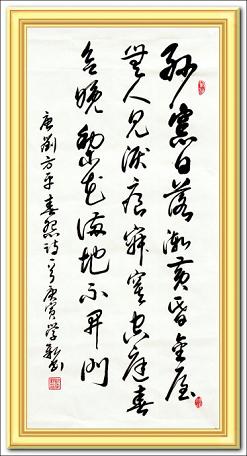 紗窗日落漸黃昏金屋
無人見淚痕寂寞空庭春
欲晚梨花滿地不開門
唐劉方平春怨詩一首庚寅学